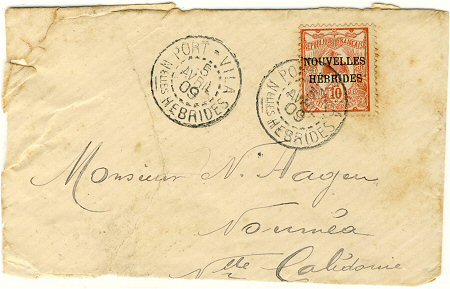 PORT-VILA
5
AVRIL
09
Nlles HEBRIDES
PORT
AVRIL
09
Nlles HEBRIDES
REPUBLIQUE FRANÇAISE
NOUVELLES
HÉBRIDES
10
Monsieur N. Hagen
Nouméa
Nlle Calédonie